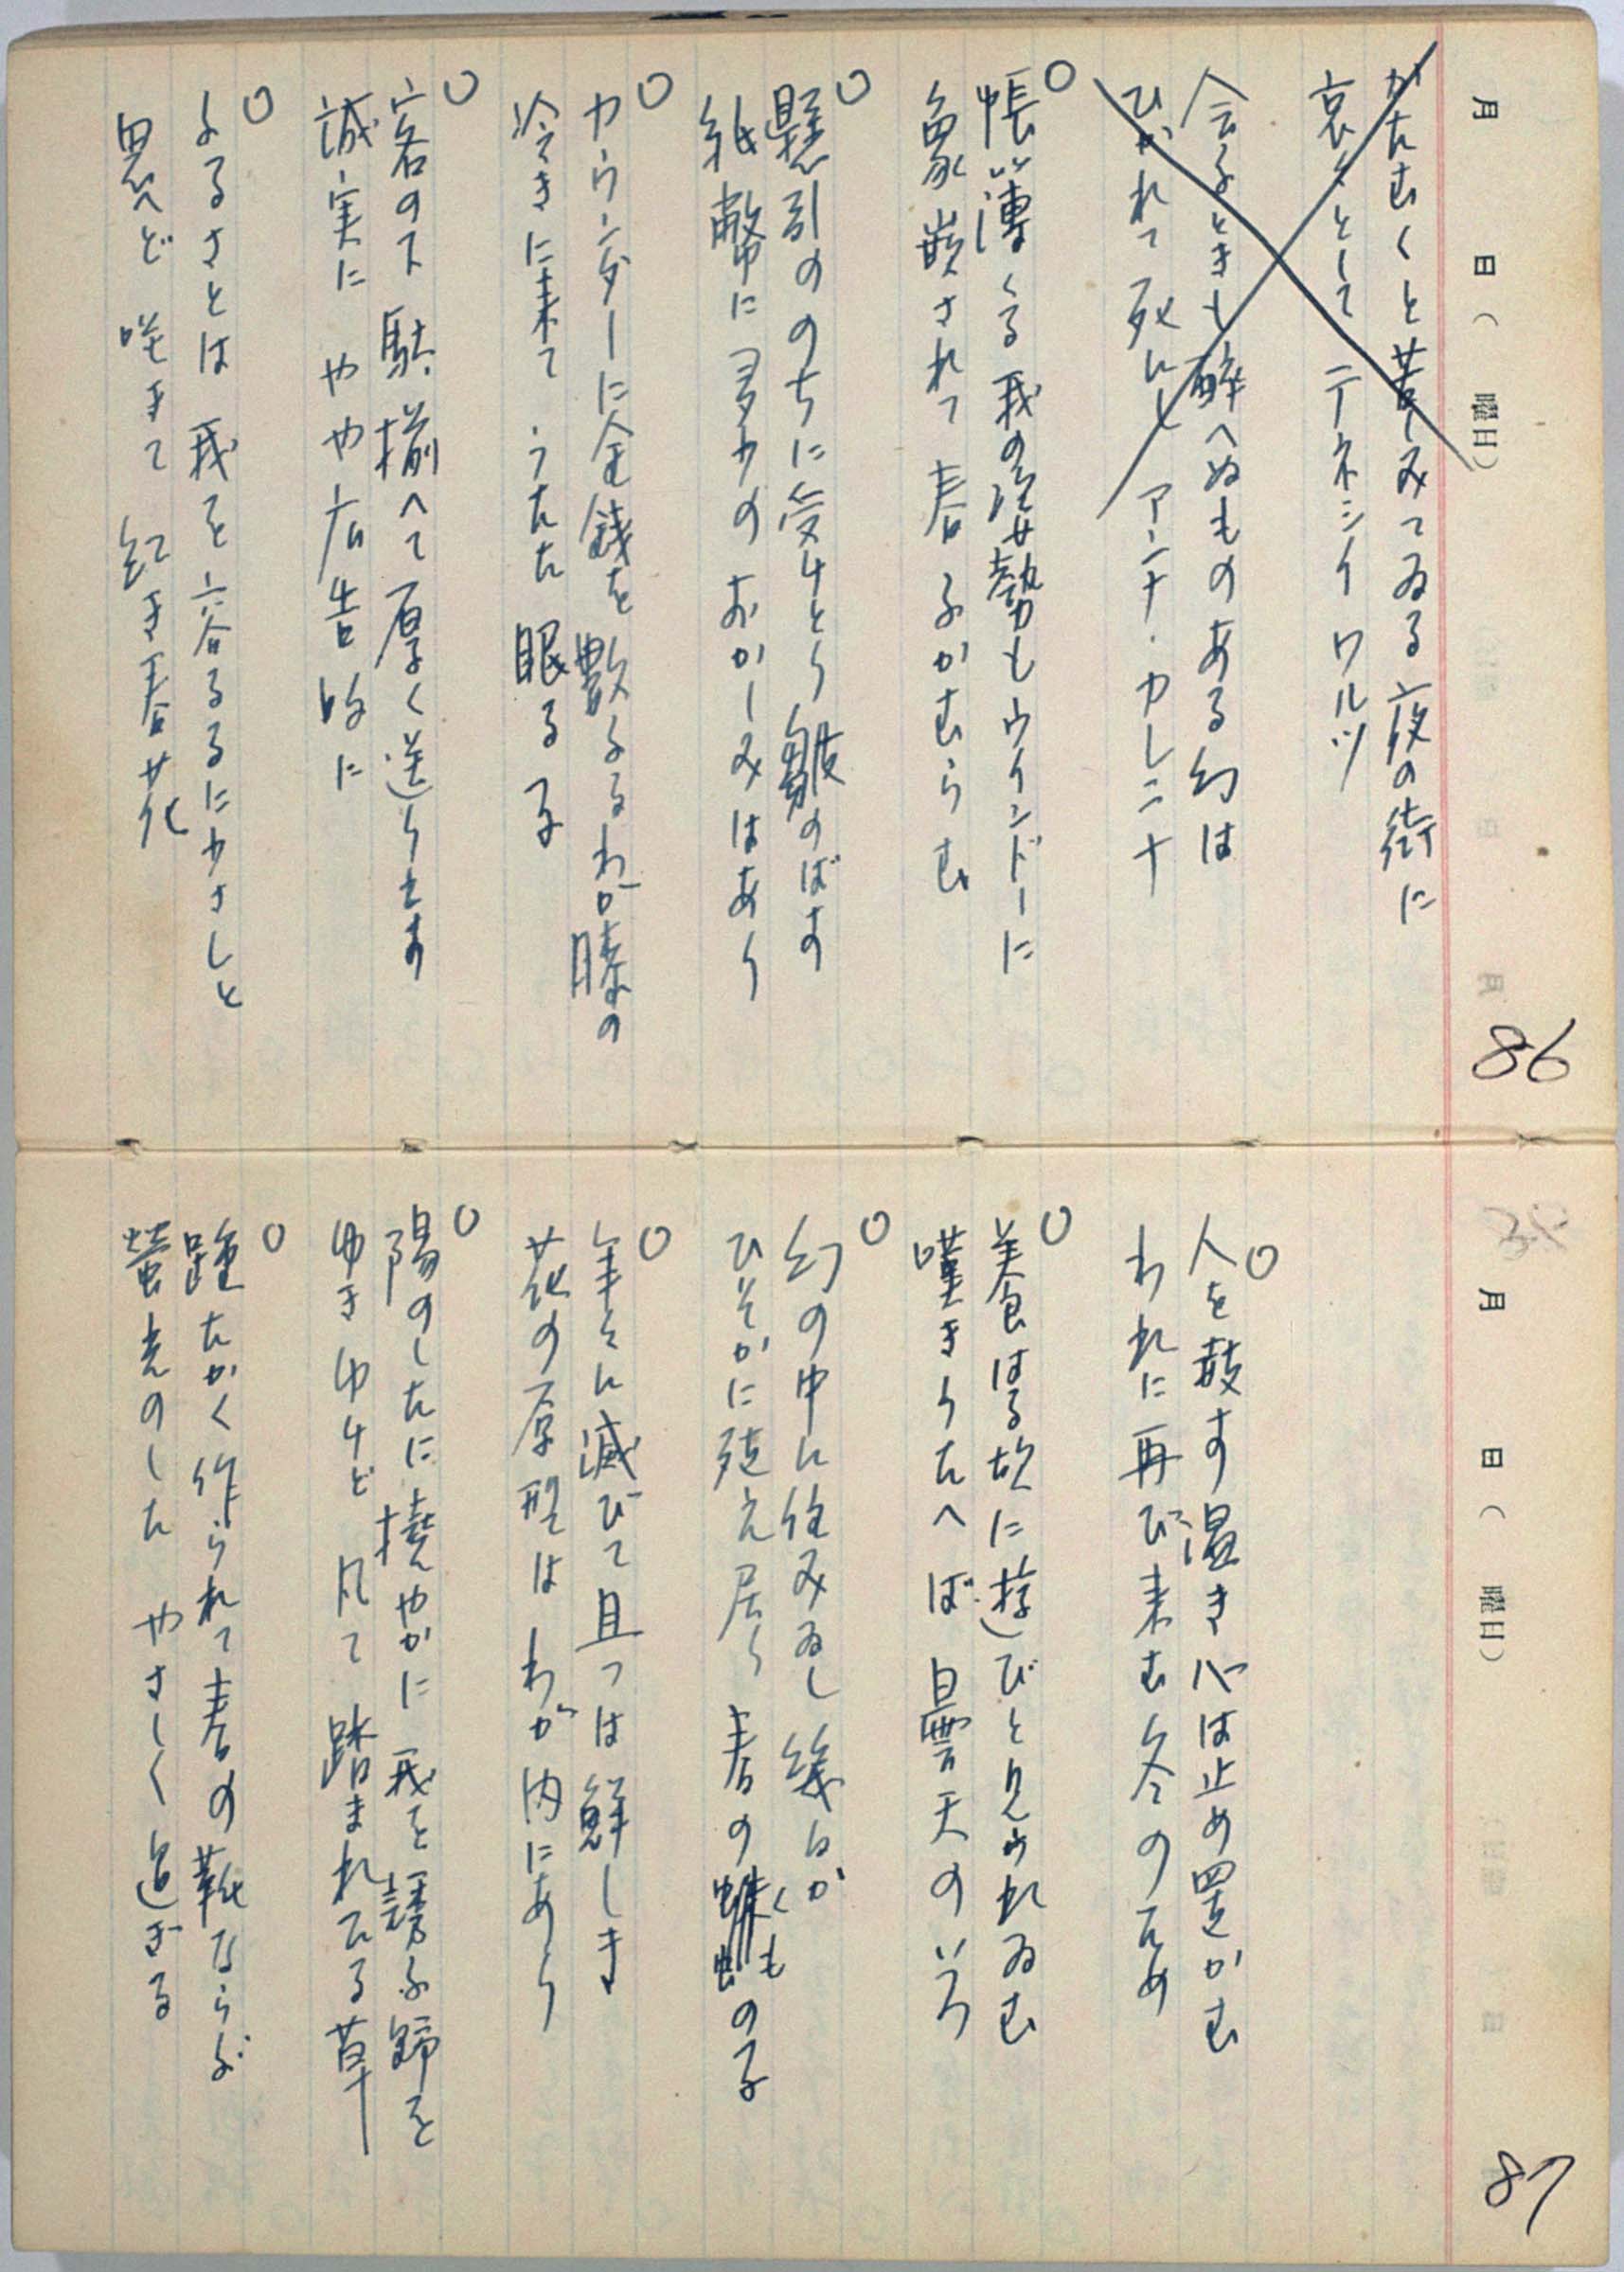 月 日( 曜日)
86
かたむくと昔しみてゐる夜の街に
哀々として テネシイ ワルツ
会ふときも酔へぬもののある幻は
ひかれて死にし アンナ・カレニナ
帳簿くる我の姿勢もウインドーに
象嵌されて 春ふかむらむ
懸引ののちに受けとり皺のばす
紙幣に 多少の おかしみはあり
カウンターに金銭を数ふるわが膝の
冷きに来て うたた 眠る子
客の下駄揃へて厚く送ります
誠実に やや広告的に
ふるさとは 我を容るるにやさしと
思へど 咲きて 紅き春花
月 日( 曜日)
87
人を鼓す温き心は止め置かむ
われに再び来む冬のため
美食はる故に遊びと見られゐむ
嘆きうたへば 曇天のいろ
幻の中に住みゐし幾日か
ひそかに殖え居り 春の蜘蛛の子
くも
年々に滅びて且つは鮮しき
花の原型は わが内にあり
陽のしたに撓やかに 我を誘ふ蹄を
ゆきゆけど 凡て 踏まれたる草
踵たかく作られて春の靴ならぶ
螢光のした やさしく過ぎる